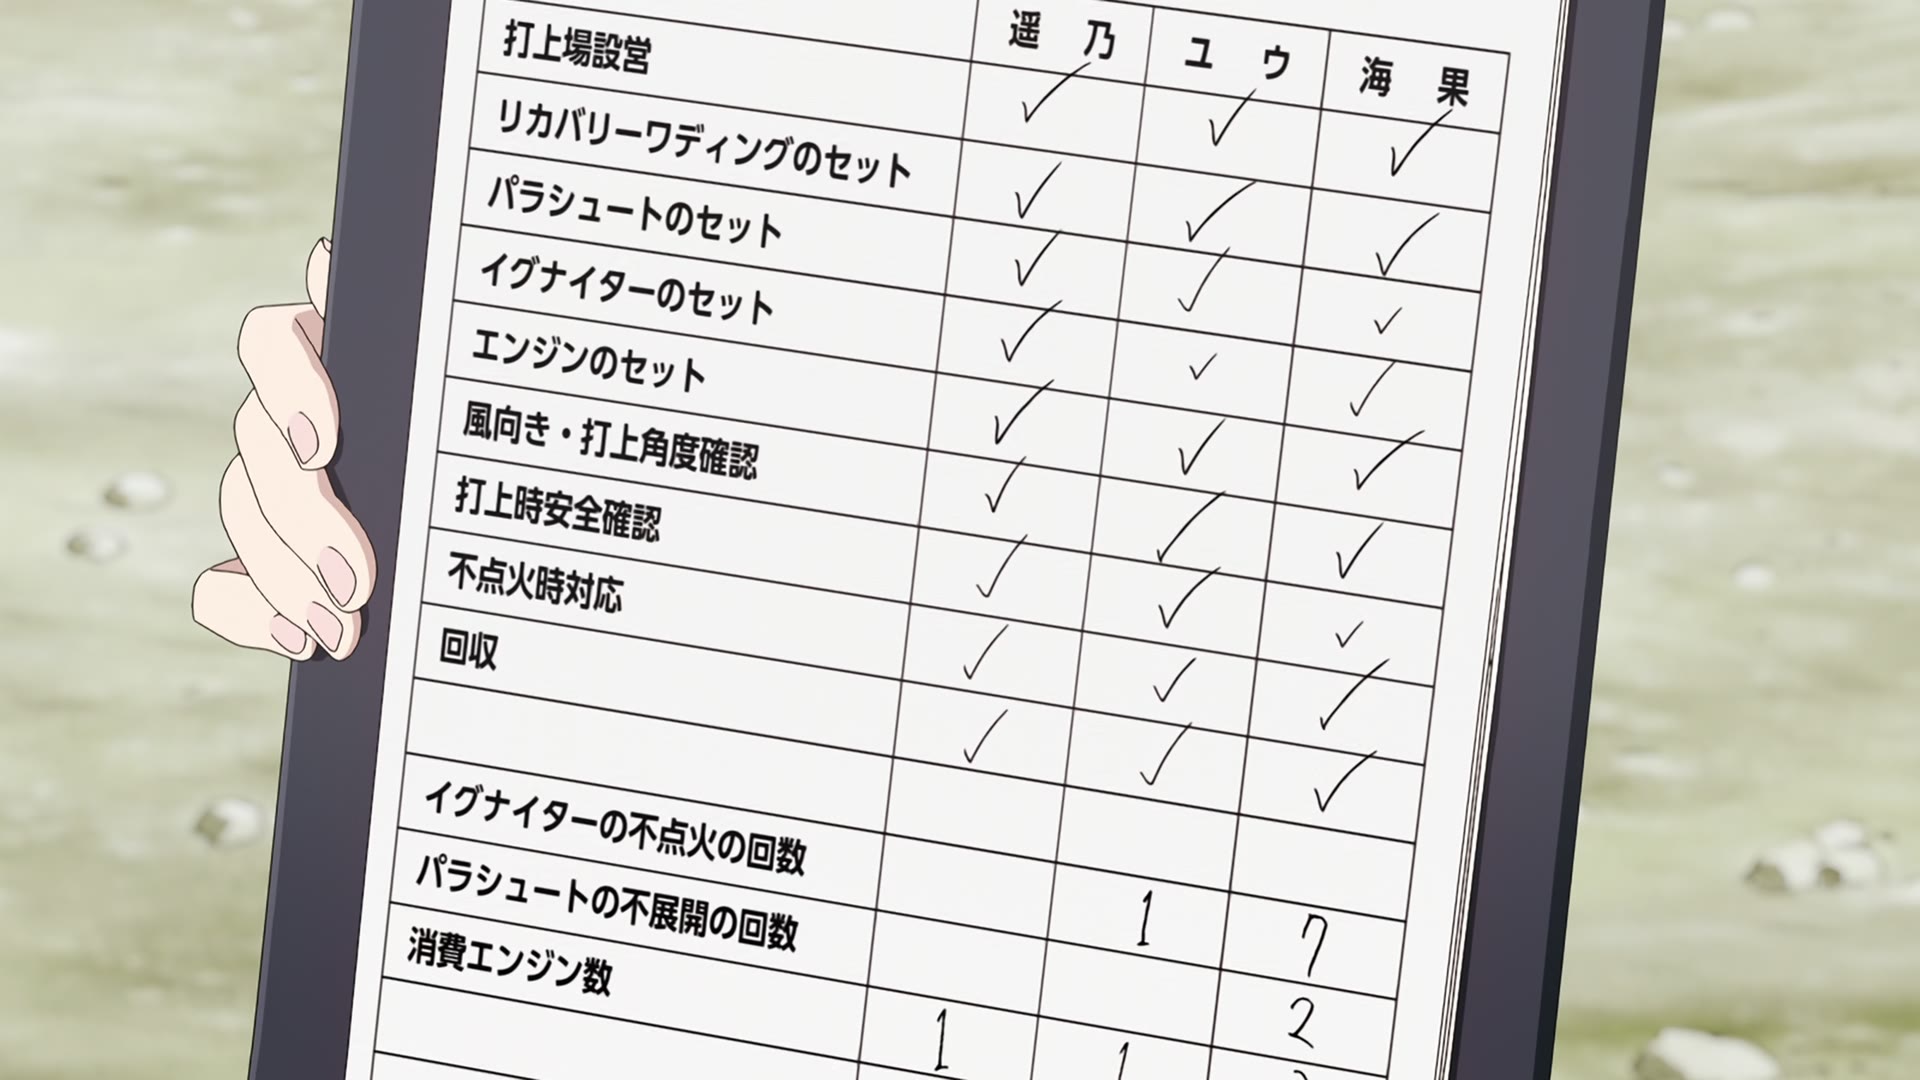 遥乃 ユウ 海果
打上場設営 ✓ ✓ ✓
リカバリーワディングのセット ✓ ✓ ✓
パラシュートのセット ✓ ✓ ✓
イグナイターのセット ✓ ✓ ✓
エンジンのセット ✓ ✓ ✓
風向き・打上角度確認 ✓ ✓ ✓
打上時安全確認 ✓ ✓ ✓
不点火時対応 ✓ ✓ ✓
回収 ✓ ✓ ✓
イグナイターの不点火の回数 1 7
パラシュートの不展開の回数 2
消費エンジン数 1 1